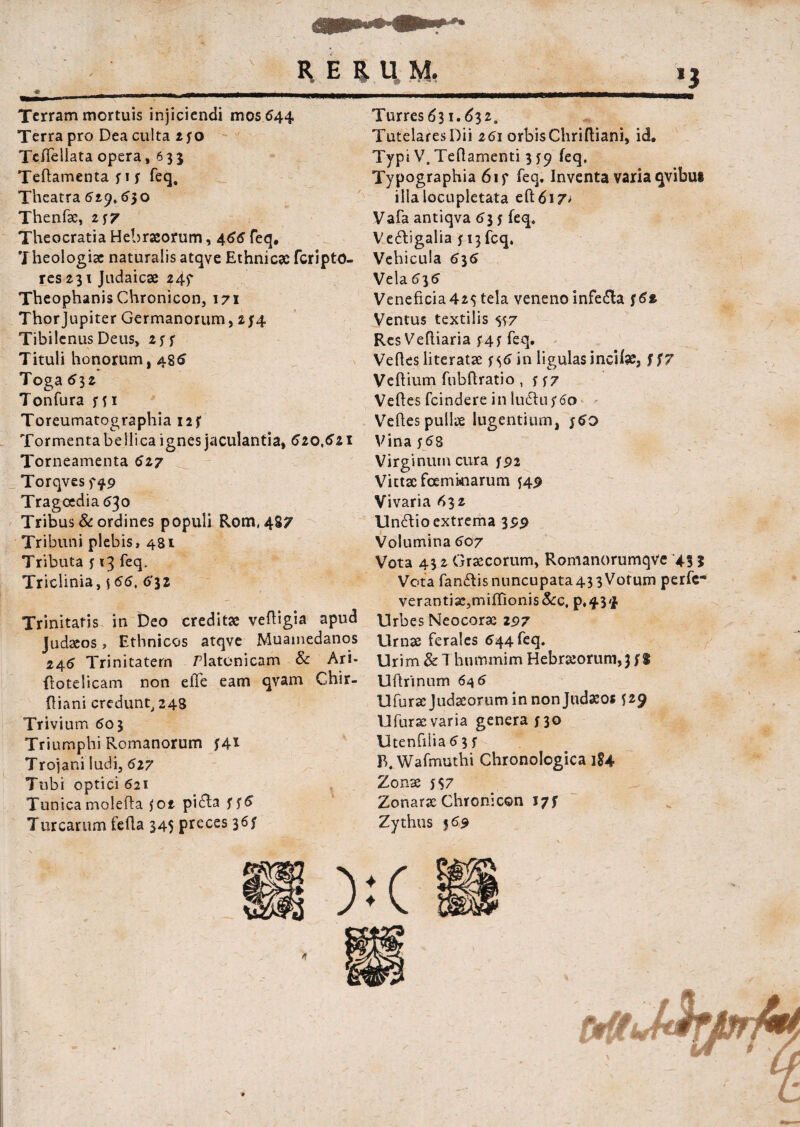 RERUM. 13
Terram mortuis injiciendi mos 644
Terra pro Dea culta 250
Teſſellata opera, 633
Teſtamenta 515 ſeq.
Theatra 629. 630
Thenſæ, 257
Theocratia Hebræorum, 466 ſeq.
Theologiæ naturalis atqve Ethnicæ ſcripto-
res 231 Judaicæ 245
Theophanis Chronicon, 171
Thor Jupiter Germanorum, 254
Tibilenus Deus, 255
Tituli honorum, 486
Toga 632
Tonſura 551
Toreumatographia 125
Tormenta bellica ignes jaculantia, 620, 621
Torneamenta 627
Torqves 549
Tragœdia 630
Tribus & ordines populi Rom. 487
Tribuni plebis, 481
Tributa 513 ſeq.
Triclinia, 566. 632
Trinitatis in Deo creditæ veſtigia apud
Judæos, Ethnicos atqve Muamedanos
246 Trinitatem Platonicam & Ari-
ſtotelicam non eſſe eam qvam Chir-
ſtiani credunt, 248
Trivium 603
Triumphi Romanorum 541
Trojani ludi, 627
Tubi optici 621
Tunica moleſta 502 picta 556
Turcarum feſta 345 preces 365
Turres 631. 632.
Tutelares Dii 261 orbis Chriſtiani, id.
Typi V. Teſtamenti 359 ſeq.
Typographia 615 ſeq. Inventa varia qvibus
illa locupletata eſt 617.
Vaſa antiqva 635 ſeq.
Vectigalia 513 ſcq.
Vehicula 636
Vela 636
Veneficia 425 tela veneno infecta 562
Ventus textilis 557
Res Veſtiaria 545 ſeq.
Veſtes literatæ 556 in ligulas inciſæ, 557
Veſtium ſubſtratio, 557
Veſtes ſcindere in luctu 560
Veſtes pullæ lugentium, 560
Vina 568
Virginum cura 592
Vittæ fœminarum 549
Vivaria 632
Unctio extrema 399
Volumina 607
Vota 432 Græcorum, Romanorumqve 433
Vota ſanctis nuncupata 433 Votum perſe-
verantiæ, miſſionis &c. p. 434
Urbes Neocoræ 297
Urnæ ferales 644 ſeq.
Urim & Thummim Hebræorum, 358
Uſtrinum 646
Uſuræ Judæorum in non Judæos 529
Uſuræ varia genera 530
Utenſilia 635
B. Waſmuthi Chronologica 184
Zonæ 557
Zonaræ Chronicon 175
Zythus 569
):(